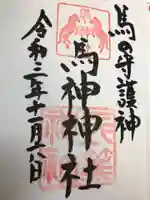 馬の守護神
馬神神社
令和三年十一月六日